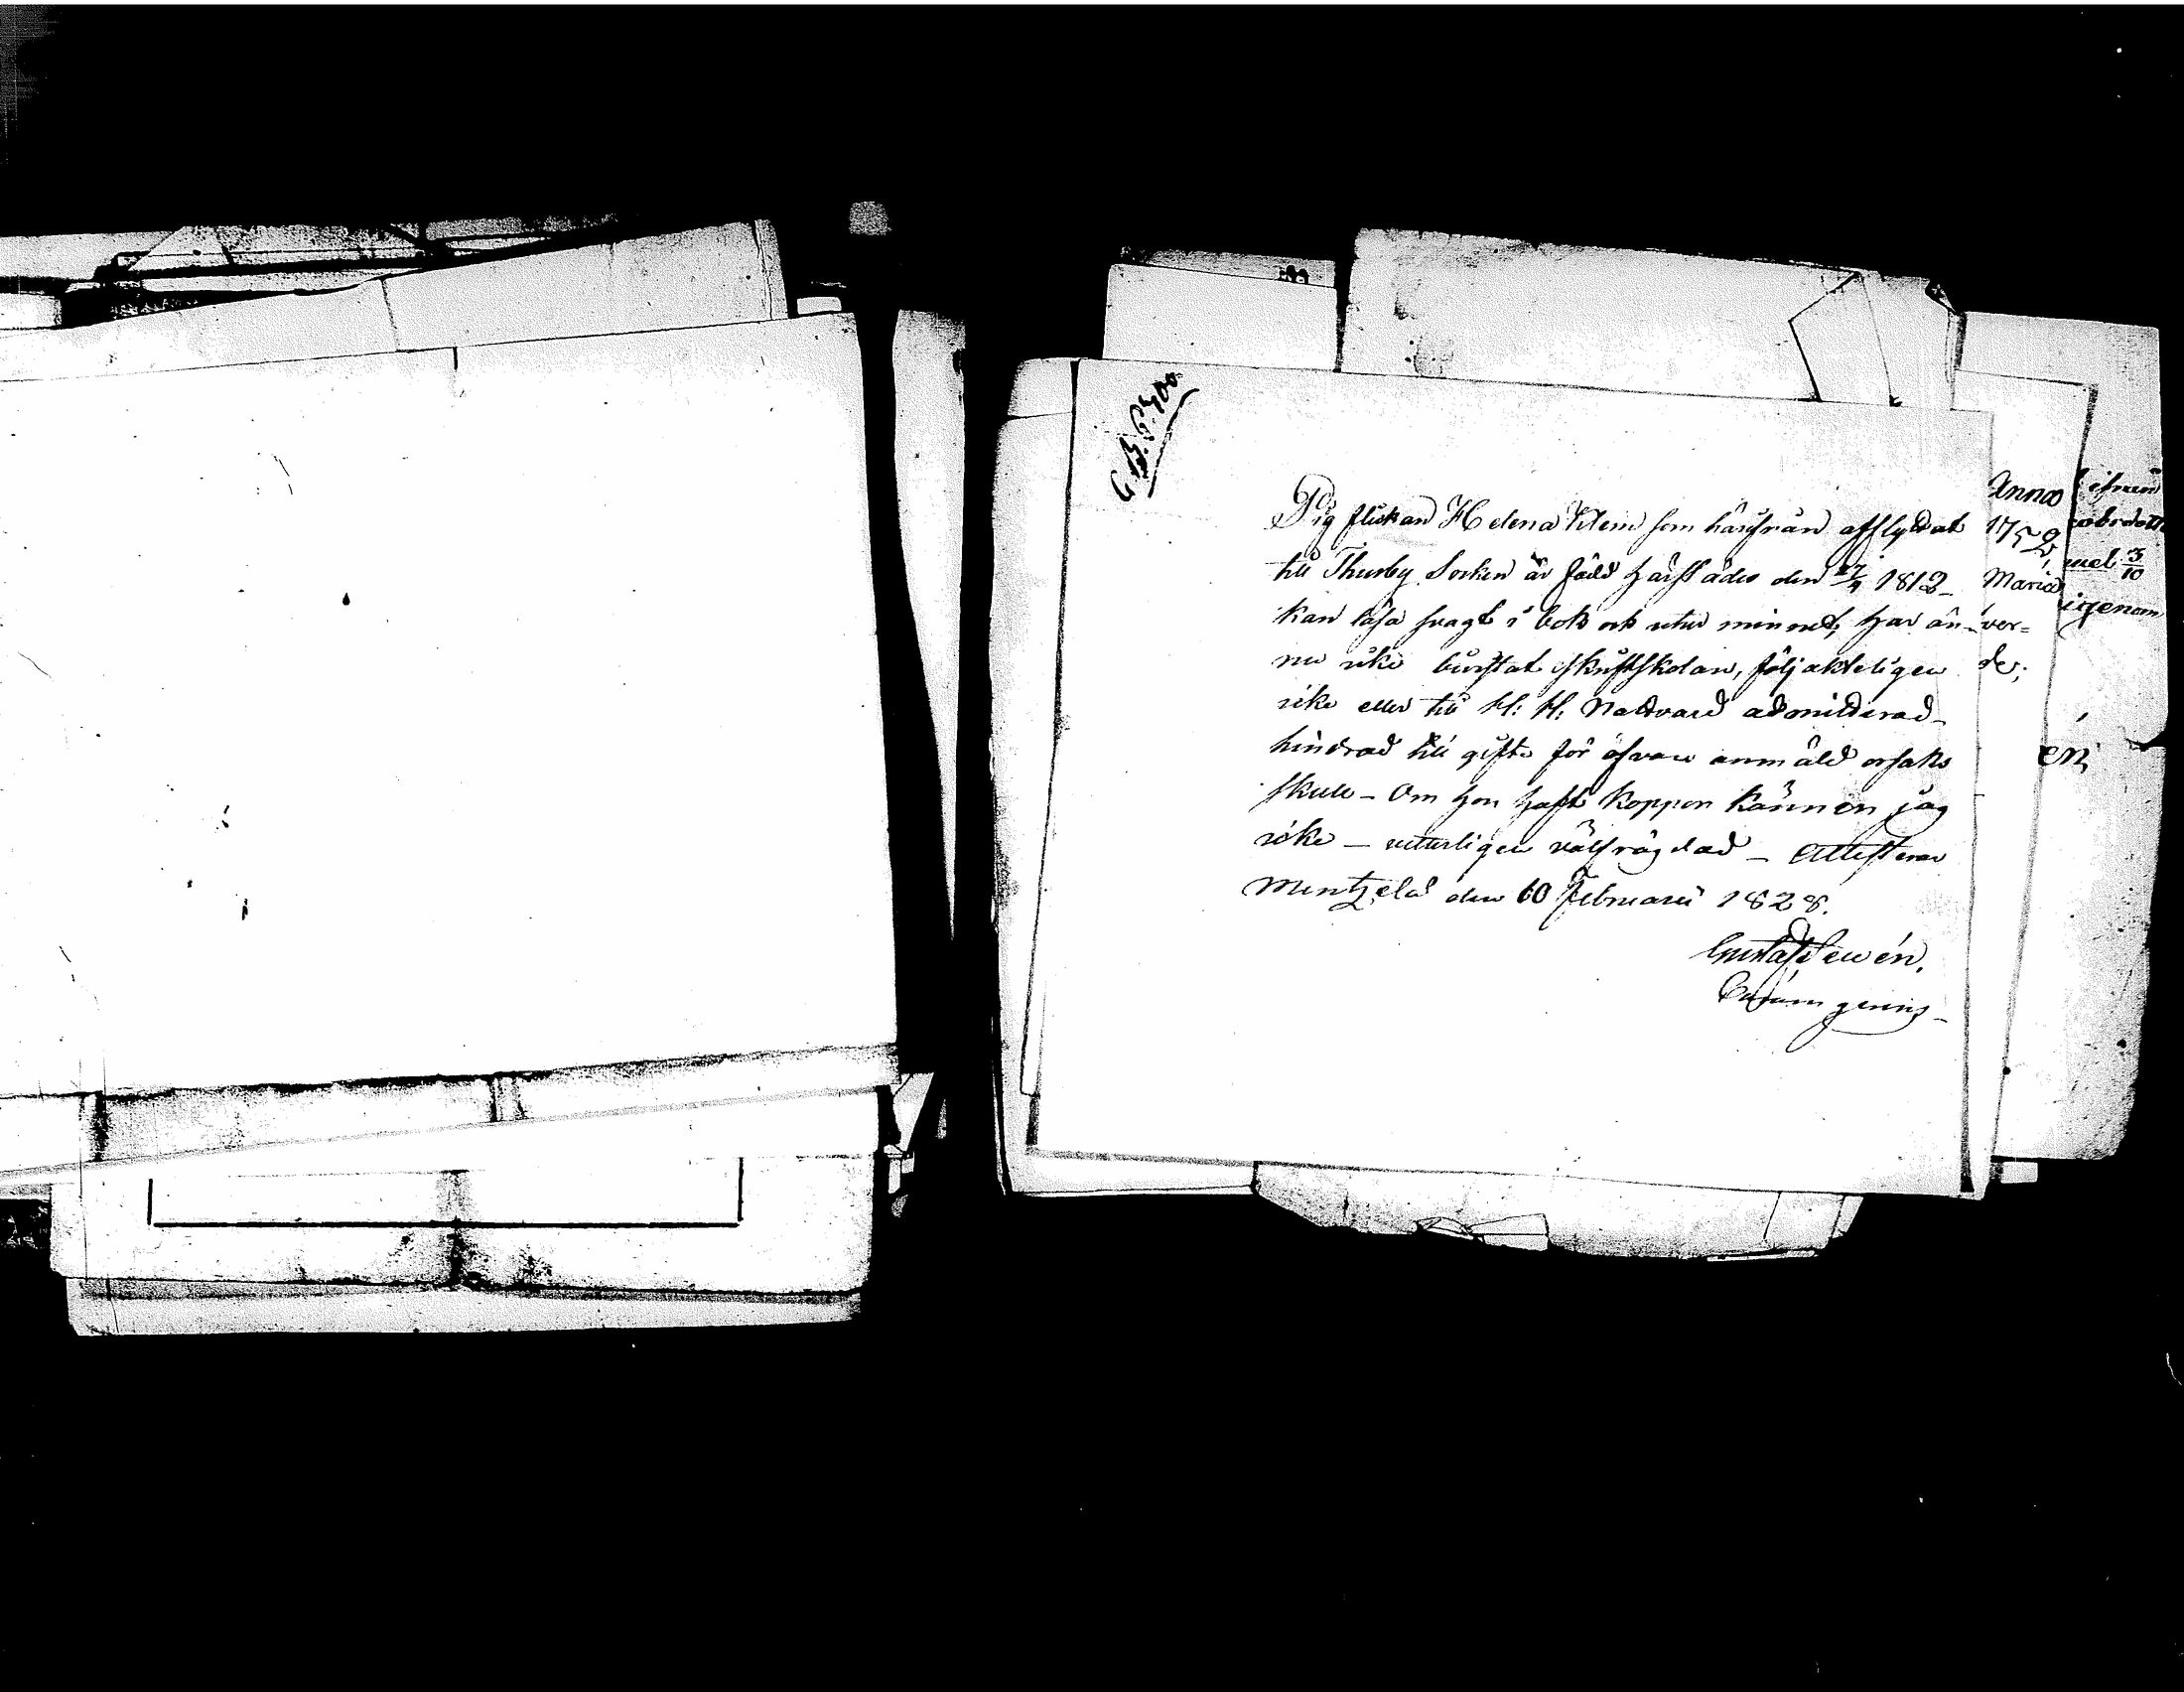 C. B. P. 700.
Pig flickan Helena Klem som härifrån afflyttat
till Thusby Socken är född härstädes den 27/4 1812 –
kan läsa svagt i bok och utur minnet, har än-
nu icke bivistat skriftskolan, följakteligen
icke eller till H: H: Nattvard admitterad –
hindrad till gifte för ofvan anmäld orsaks
skull – Om hon haft koppor känner jag
icke – utterligen välfrägdad – Attesterar
Mentzelä den 10 Februarii 1828.
Gustaf
Anna
175
Maria
ver=
de;
en
ifrån
mel 3/10
igenom